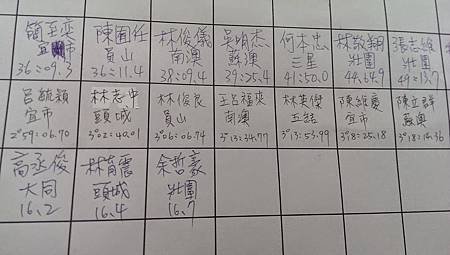 簡至奕 陳囿任 林俊儀 吳明杰 何本忠 林敬翔 張志維
宜市 員山 南澳 蘇澳 三星 壯圍 壯圍
36:09.3 36:11.4 38:09.4 39:25.4 41:50.0 44:54.9 49:13.7
呂毓穎 林志中 林俊良 王呂福來 林英傑 陳維慶 陳立群
宜市 頭城 員山 南澳 五結 宜市 蘇澳
2°59:06.90 3°02:40.01 3°06:06.74 3°13:34.77 3°13:53.99 3°18:25.18 3°18:14.36
高丞俊 林育震 余哲豪
大同 頭城 壯圍
16.2 16.4 16.7